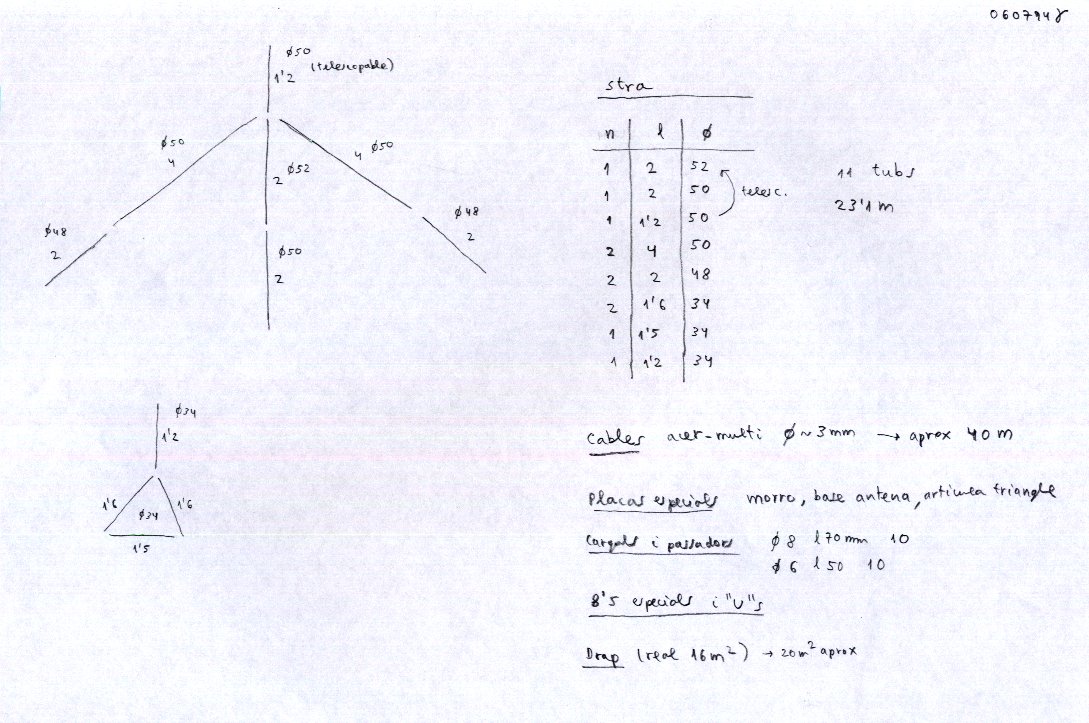 0607948
φ50
(telescopable)
1'2
φ50
4
φ50
4
φ52
2
φ48
2
φ48
2
φ50
2
stra
n l φ
1 2 52
1 2 50
1 1'2 50
telesc.
2 4 50
2 2 48
2 1'6 34
1 1'5 34
1 1'2 34
11 tubs
23'1 m
φ34
1'2
1'6
φ34
1'6
1'5
Cables acer-multi φ ~ 3mm → aprox 40 m
Placas especials morro, base antena, triangle
Cargols i passadors φ 8 l 70 mm 10
φ 6 l 50 10
8's especials i "U"s
Drap (real 16m²) → 20m² aprox